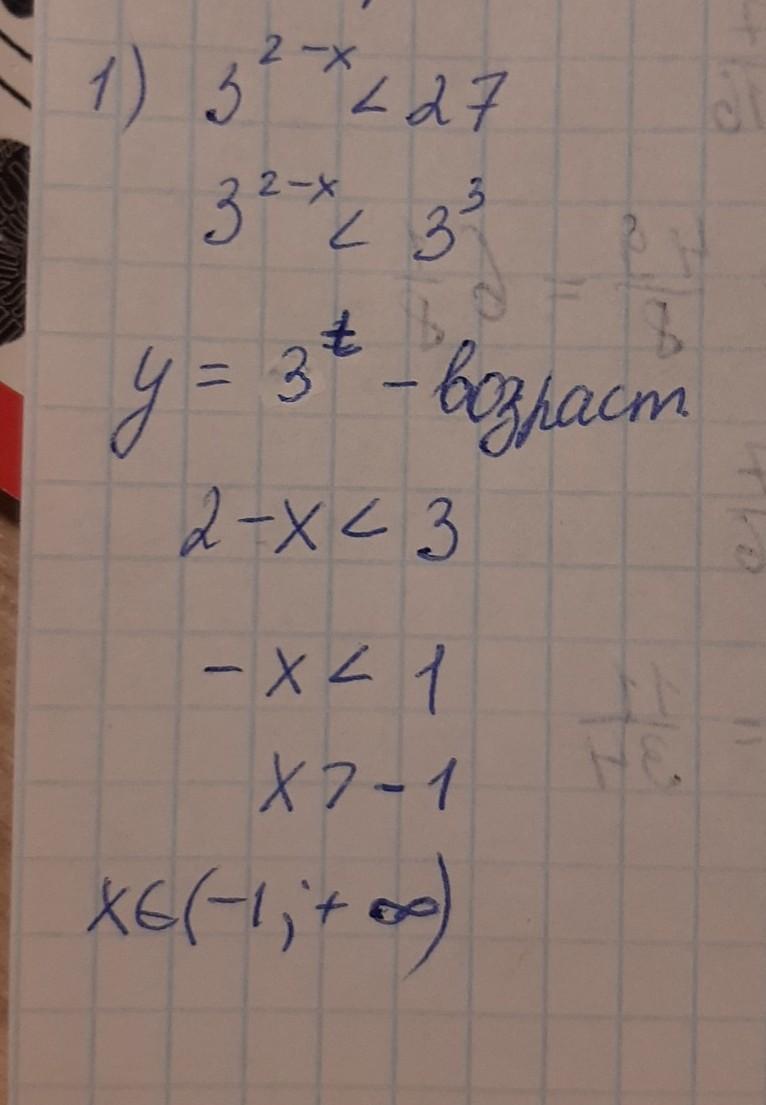 1) 3^{2-x} < 27
3^{2-x} < 3^3
y = 3^t - возраст.
2-x < 3
-x < 1
x > -1
x∈(-1; +∞)